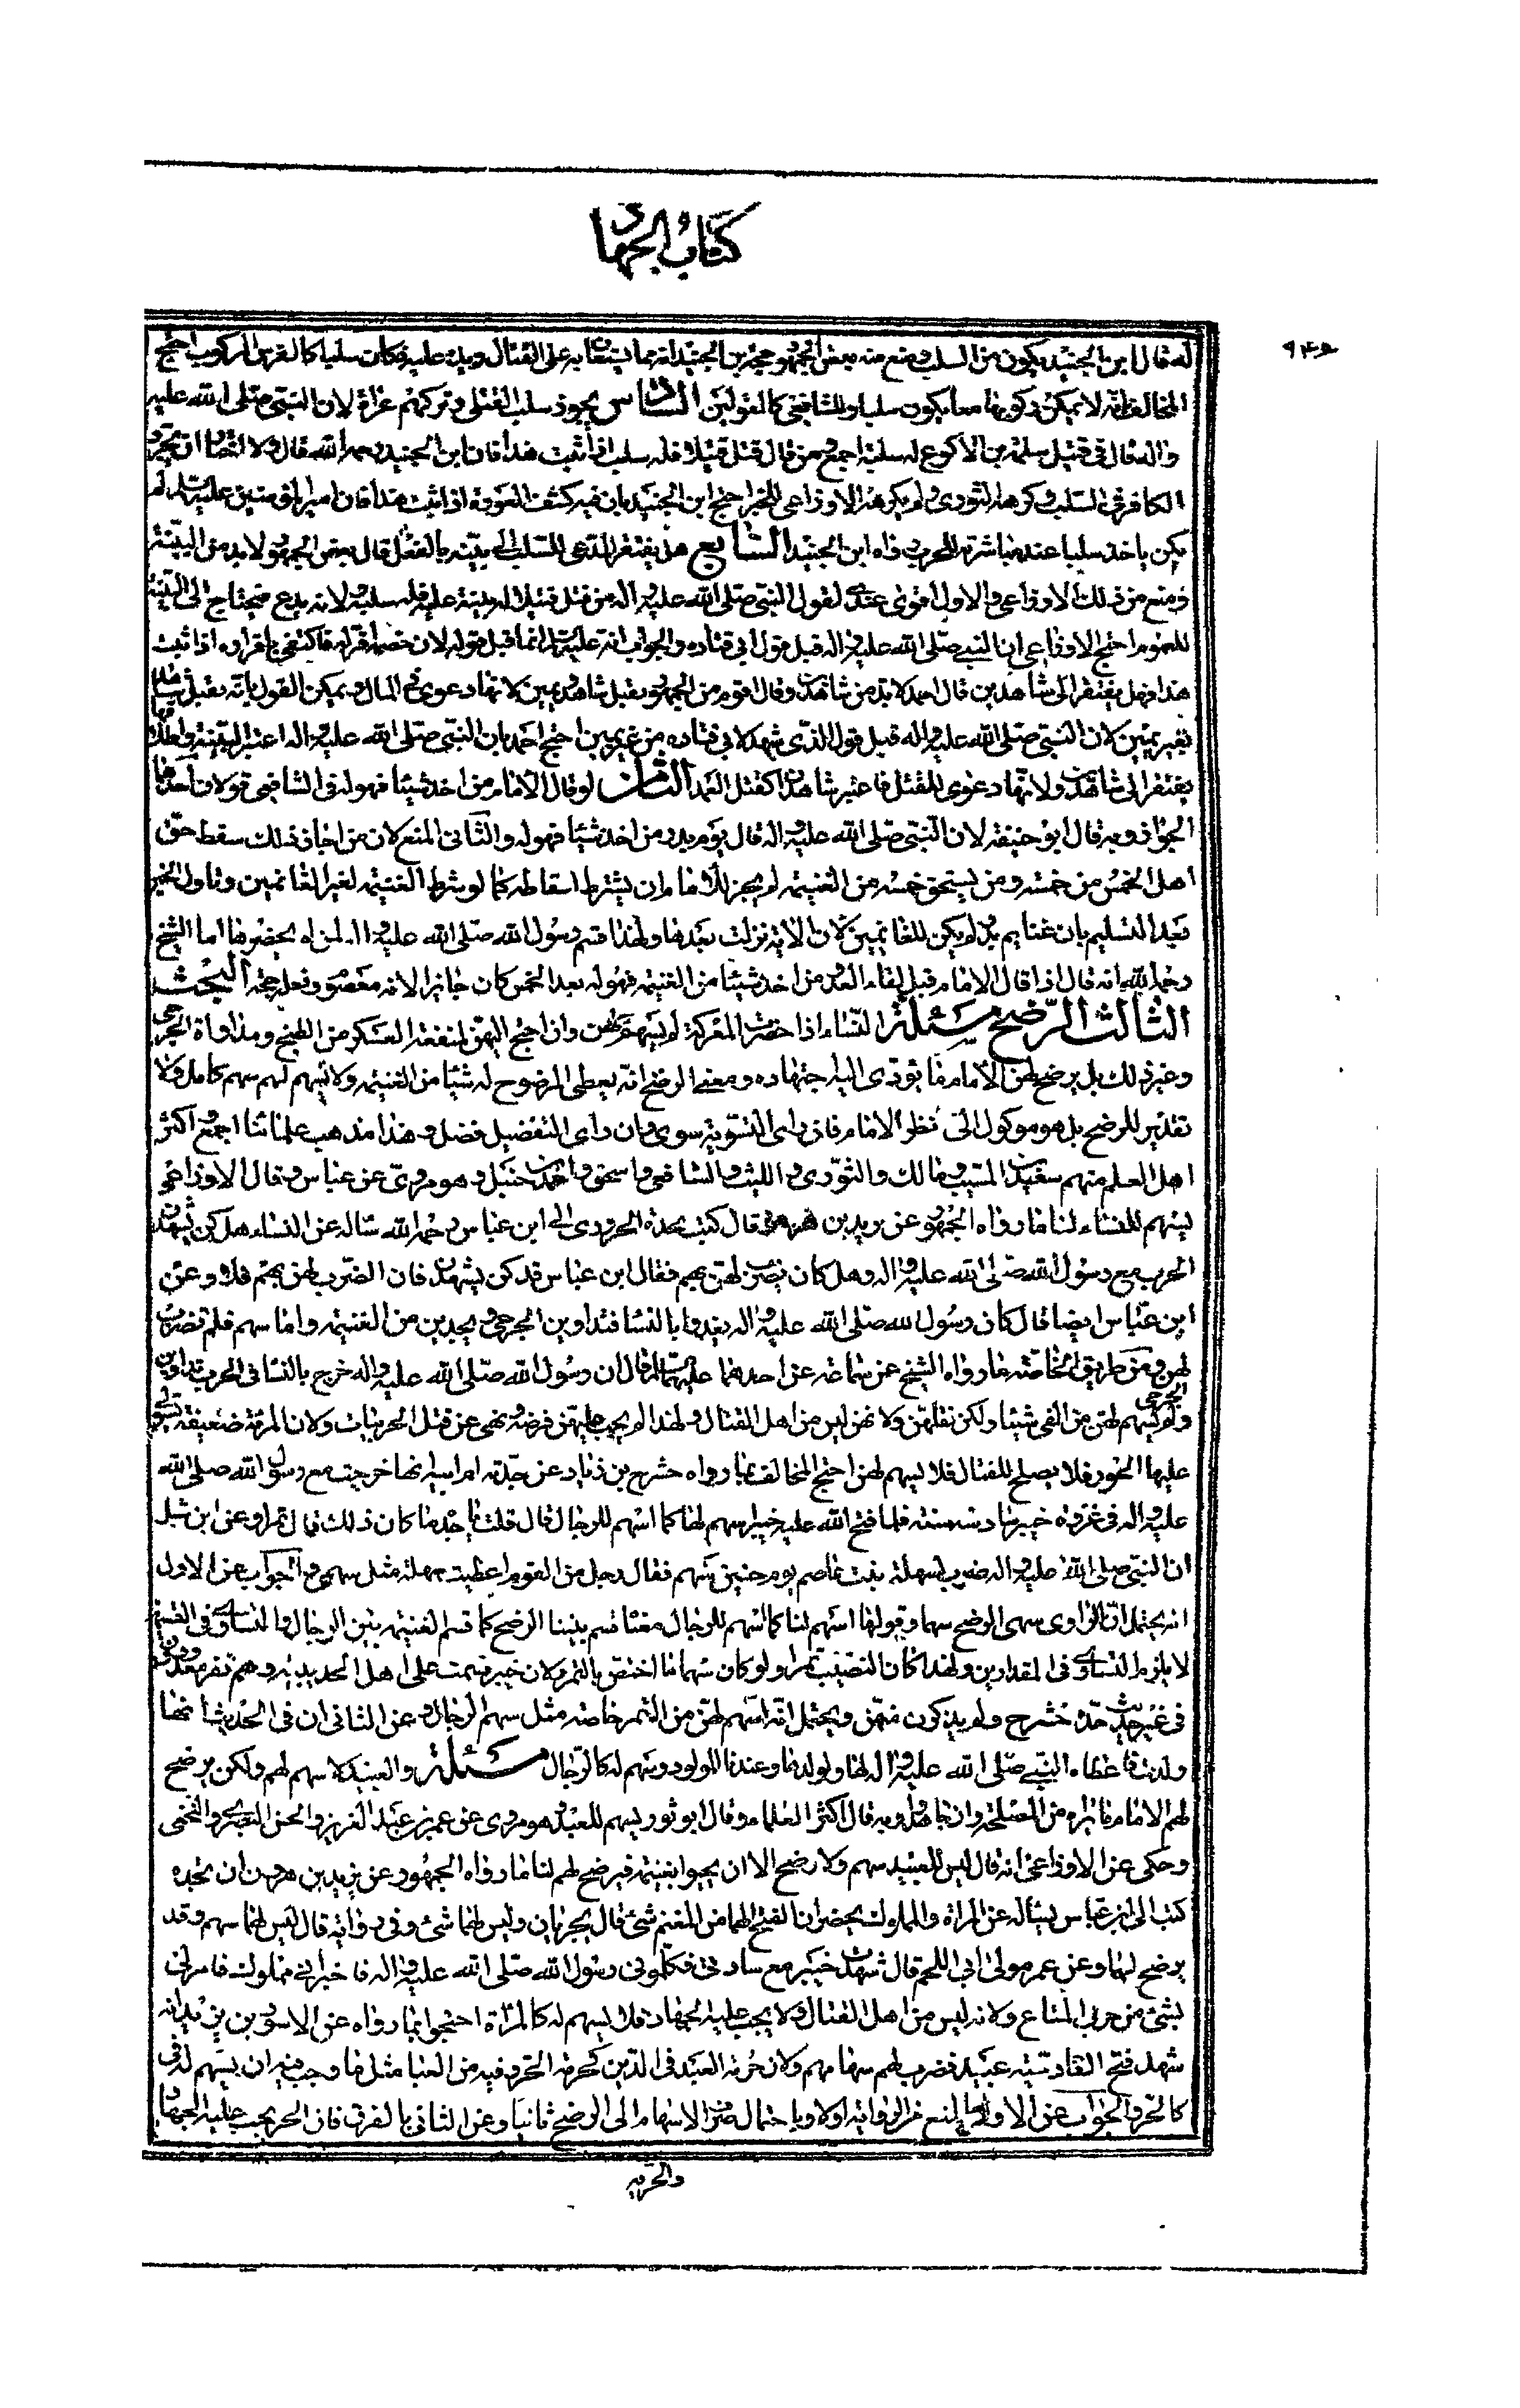 كتاب الجهاد
٩٤٥
له قال ابن الجنيد يكون من السلب ومنع منه بعض الجمهور حجة ابن الجنيد انه مما يستعان به على القتال ويده عليه فكان سلبا كالفرس المركوب احتج
المخالف انه لا يمكن ركوبهما معا يكون سلبا وللشافعي كالقولين السادس يجوز سلب القتلى وتركهم عراة لان النبي صلى الله عليه
واله قال في قتيل سلمة بن الاكوع له سلبه اجمع ومن قال قتل قتيلا فله سلبه اذا ثبت هذا فان ابن الجنيد رحمه الله قال ولا
الكافر في السلب وكرهه الثوري ولم يكرهه الاوزاعي للخبر احتج ابن الجنيد بان فيه كشف العورة اذا ثبت هذا فان امير المؤمنين عليه السلام لم
يكن ياخذ سلبا عند مباشرته للحرب رواه ابن الجنيد السابع هل يفتقر المدعي للسلب الى بينة بالقتل قال بعض الجمهور لا بد من البينة
ومنع من ذلك الاوزاعي والاول اقوى عندي لقول النبي صلى الله عليه واله من قتل قتيلا له بينة عليه فله سلبه ولانه مدع فيحتاج الى البينة
للعموم احتج الاوزاعي ان النبي صلى الله عليه واله قبل قول ابي قتاده والجواب انه عليه السلام انما قبل قوله لان خصمه اقر له فاكتفى باقراره اذا ثبت
هذا فهل يفتقر الى شاهدين قال احمد لا بد من شاهدين وقال قوم من الجمهور يقبل شاهد ويمين لانها دعوى في المال ويمكن القول بانه يقبل شاهد
بغير يمين لان النبي صلى الله عليه واله قبل قول الذي شهد لابي قتاده من غير يمين احتج احمد بان النبي صلى الله عليه واله اعتبر البينة واطلاقها
يفتقر الى شاهدين ولانها دعوى للقتل فاعتبر شاهدان كقتل العمد الثامن لو قال الامام من اخذ شيئا فهو له في الشافعي قولان احدهما
الجواز وبه قال ابو حنيفة لان النبي صلى الله عليه واله قال يوم بدر من اخذ شيئا فهو له والثاني المنع لان من اجاز ذلك سقط حق
اهل الخمس من خمسه ومن يستحق خمسه من الغنيمة لم يجز للامام ان يشترط اسقاطه كما لو شرط الغنيمة لغير الغانمين وتاول الخبر
بعد التسليم بان غنايم بدر لم يكن للغانمين لان الاية نزلت بعدها ولهذا قسم رسول الله صلى الله عليه واله لمن لم يحضرها اما الشيخ
رحمه الله انه قال اذا قال الامام قبل لقاء العدو من اخذ شيئا من الغنيمة فهو له بعد الخمس كان جايزا لانه معصوم وفعله حجة البحث
الثالث الرضخ مسئلة النساء اذا حضرت المعركة لم يسهم لهن وان احتيج اليهن لمنفعة العسكر من الطبخ ومداواة الجرحى
وغير ذلك بل يرضخ لهن الامام ما يؤدى اليه اجتهاده ومعنى الرضخ انه يعطى المرضوخ له شيئا من الغنيمة ولا يسهم لهم سهم كامل ولا
تقدير للرضخ بل هو موكول الى نظر الامام فان راى التسوية سوى وان راى التفضيل فضل وهذا مذهب علمائنا اجمع واكثر
اهل العلم منهم سعيد بن المسيب ومالك والثوري والليث والشافعي واسحق واحمد بن حنبل وهو مروى عن عباس وقال الاوزاعي
يسهم للنساء لنا ما رواه الجمهور عن يزيد بن هرمز قال كتب نجدة الحرورى الى ابن عباس رحمه الله ساله عن النساء هل كن يشهدن
الحرب مع رسول الله صلى الله عليه واله وهل كان يضرب لهن بسهم فقال ابن عباس قد كن يشهدن فان الضرب لهن بسهم فلا وعن
ابن عباس ايضا قال كان رسول الله صلى الله عليه واله يغدوا بالنساء فتداوين الجرحى ويجدين من الغنيمة واما سهم فلم نضرب
لهن ومن طريق الخاصة ما رواه الشيخ عن سماعة عن احدهما عليهما السلام قال ان رسول الله صلى الله عليه واله خرج بالنساء في الحرب تداوين الجرحى
ولم يسهم لهن من الفئ شيئا ولكن نفلهن ولانهن ليس من اهل القتال ولهذا لم يجب عليهن فرضه ونهى عن قتل الحربيات ولان المرئة ضعيفة يستولى
عليها الخور فلا يصلح للقتال فلا يسهم لهن احتج المخالف بما رواه حشرج بن زياد عن جدته ام ابيه انها خرجت مع رسول الله صلى الله
عليه واله في غزوة خيبر سادسة ستة فلما فتح الله عليه خيبر اسهم لنا كما اسهم للرجال قال قلت يا جدة ما كان ذلك قالت تمرا وعن ابن شبل
ان النبي صلى الله عليه واله ضرب لسهلة بنت عاصم يوم حنين بسهم فقال رجل من القوم اعطيت سهلة مثل سهمي والجواب عن الاول
انه يحتمل ان الراوى سمى الرضخ سهما وقولها اسهم لنا كما اسهم للرجال معناه قسم بيننا الرضخ كما قسم الغنيمة بين الرجال والتساوى في القسمة
لا يلزم التساوى في المقدارين ولهذا كان النصيب تمرا ولو كان سهما ما اختص بالتمر ولان خيبر قسمت على اهل الحديبية وهم نفر معدودون
في غير حديث جدة حشرج ولم يذكرن منهم ويحتمل انه اسهم لهن من التمر خاصة مثل سهم الرجال وعن الثاني ان في الحديث انها
ولدت فاعطاه النبي صلى الله عليه واله لها ولولدها وعندنا المولود يسهم له كالرجال مسئلة والعبيد لا سهم لهم ولكن يرضخ
لهم الامام ما يراه من المصلحة وان جاهدوا وبه قال اكثر العلماء وقال ابو ثور يسهم للعبد وهو مروى عن عمر بن عبد العزيز والحسن البصري والنخعي
وحكى عن الاوزاعي انه قال ليس للعبيد سهم ولا رضخ الا ان يجيئوا بغنيمة فيرضخ لهم لنا ما رواه الجمهور عن يزيد بن هرمز ان نجدة
كتب الى ابن عباس يسئاله عن المراة والمملوك يحضران الفتح الهما من المغنم شئ قال يجزيان وليس لهما شئ وفي رواية قال ليس لهما سهم وقد
يرضخ لهما وعن عمير مولى ابي اللحم قال شهدت خيبر مع سادتي فكلموا في رسول الله صلى الله عليه واله فاخبر اني مملوك فامر لي
بشئ من خرثي المتاع ولانه ليس من اهل القتال ولا يجب عليه الجهاد فلا يسهم له كالمراة احتجوا بما رواه عن الاسود بن يزيد انه
شهد فتح القادسية عبيد فضرب لهم سهامهم ولان حرمة العبد في الدين كحرمة الحر وفيه من الغنا مثل ما وجب فيه ان يسهم له
كالحر والجواب عن الاول بالمنع من الرواية اولا وباحتمال صرف الاسهام الى الرضخ ثانيا وعن الثاني بالفرق فان الحر يجب عليه الجهاد
والحرية